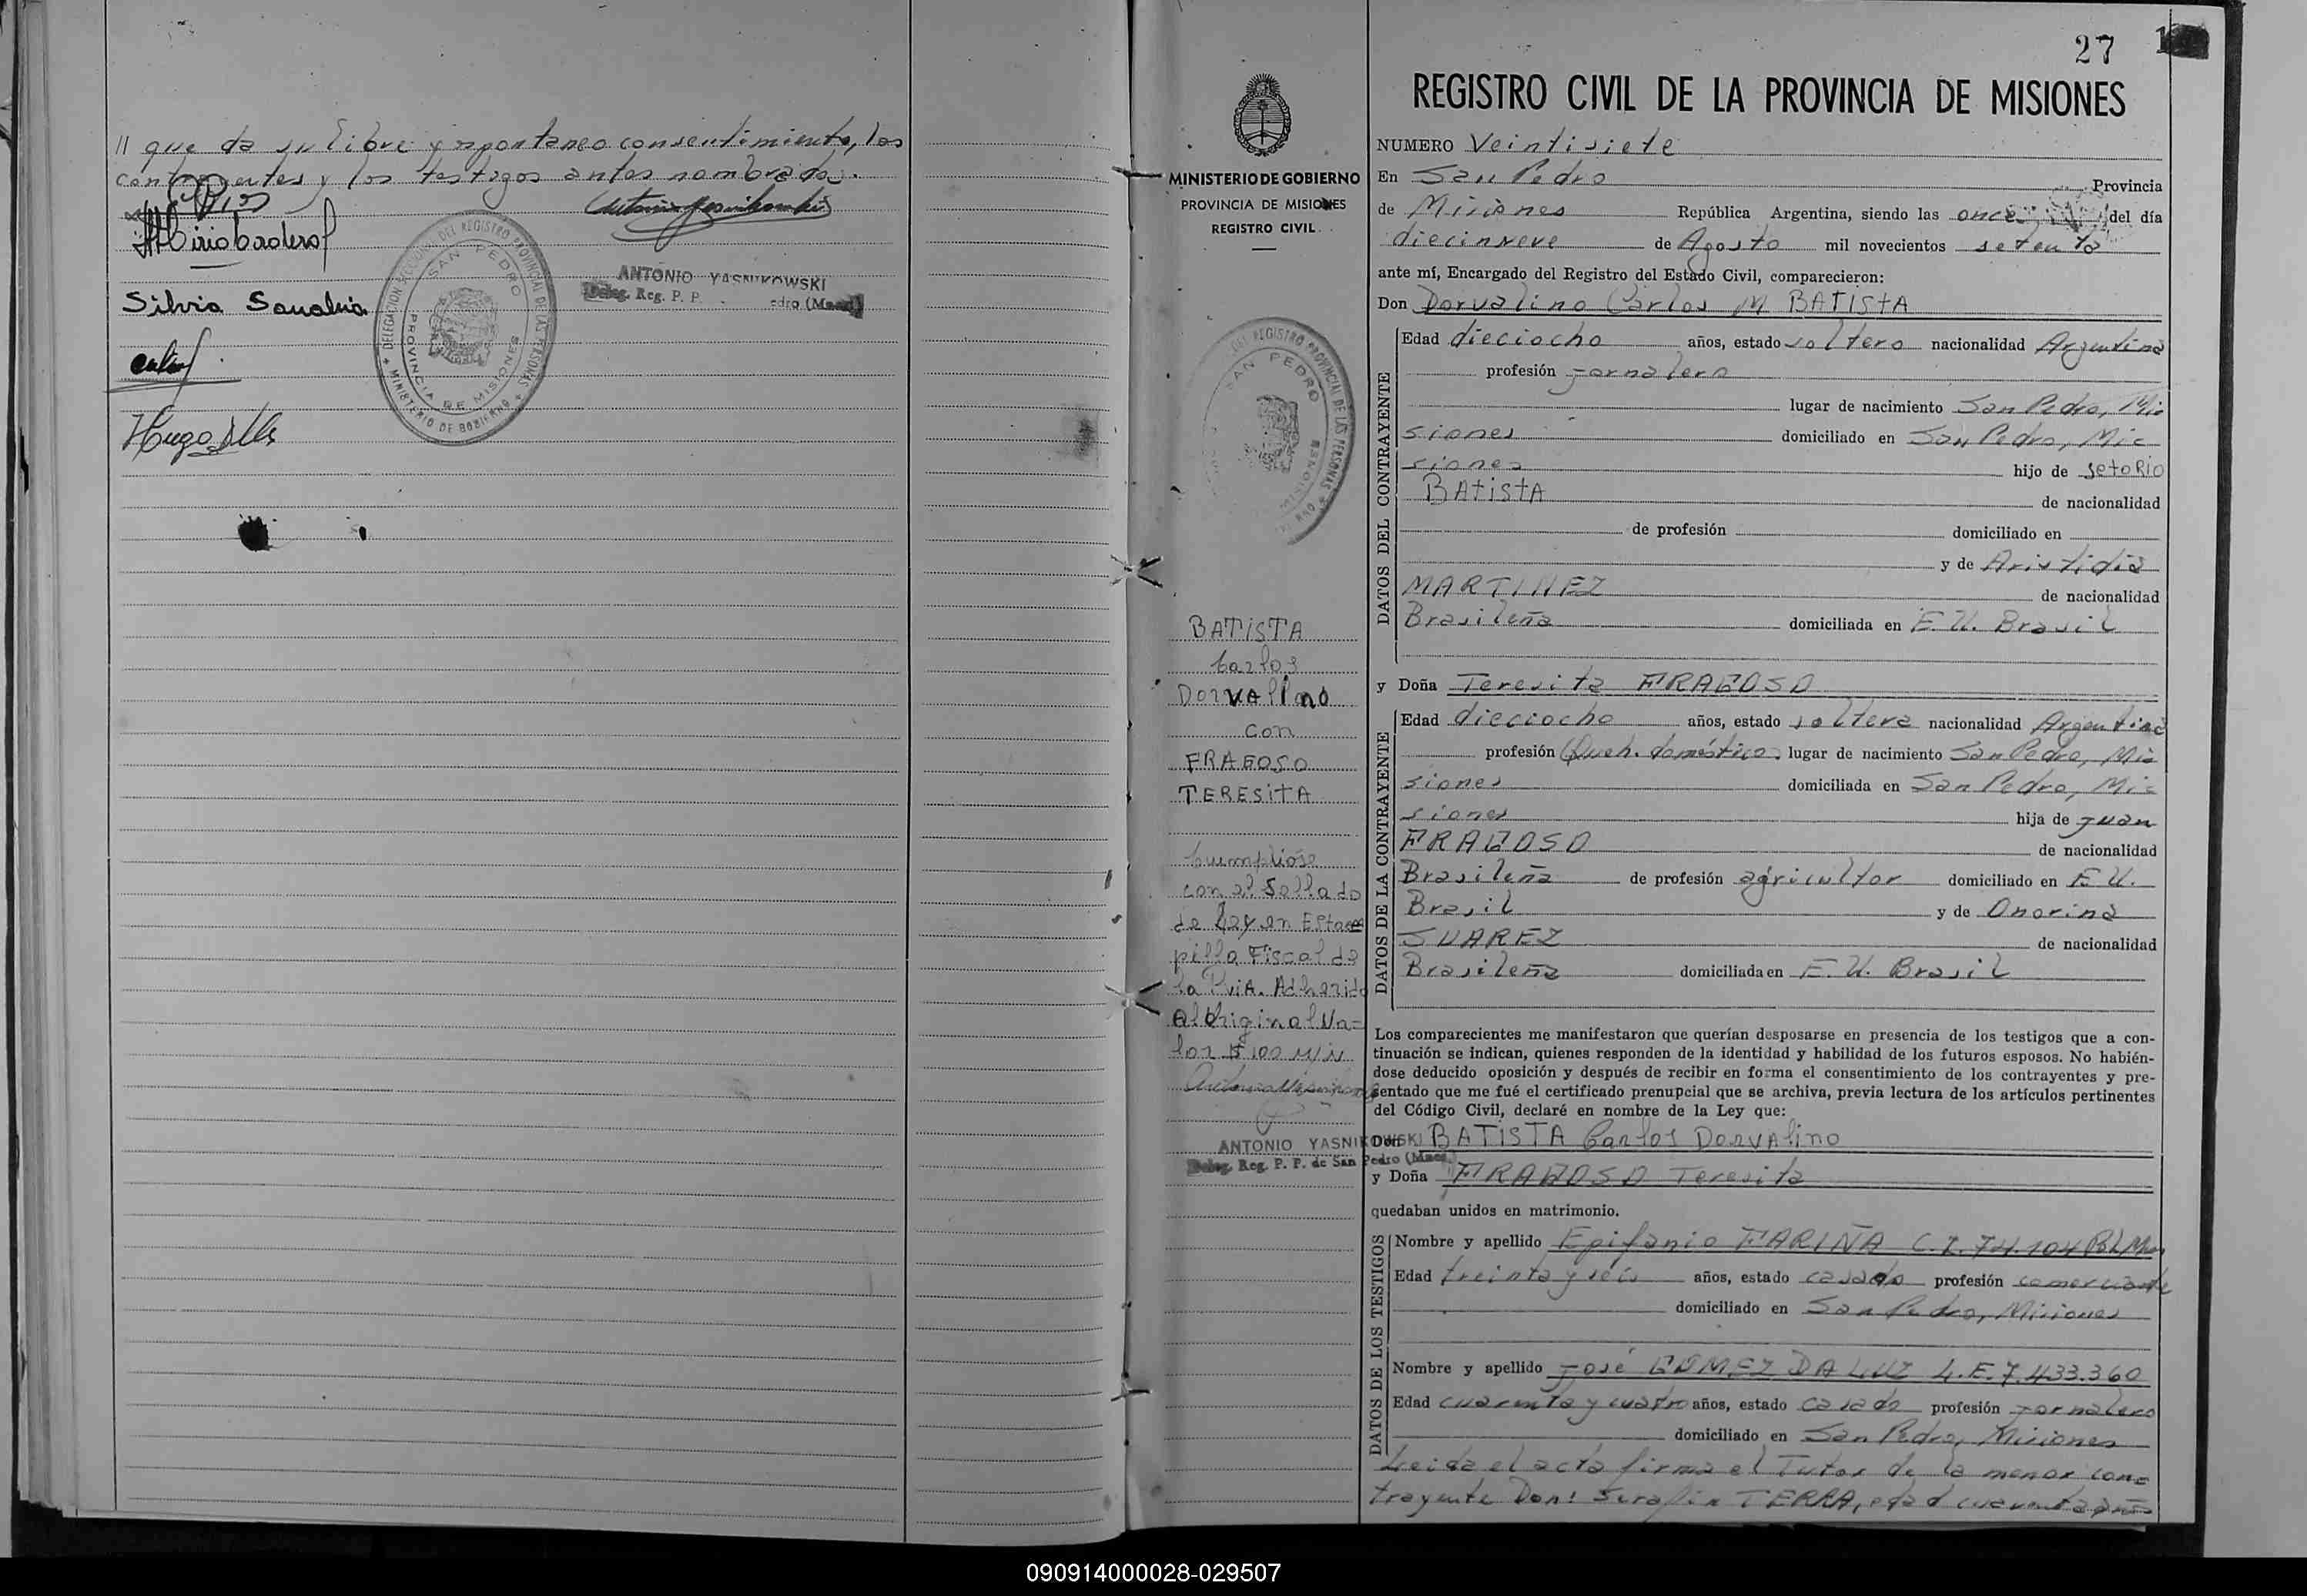 // que da su libre y espontaneo consentimiento, los
contrayentes y los testigos antes nombrados.
ANTONIO YASNIKOWSKI
Deleg. Reg. P. P. edro (Mnes)
Silvio
Hugo
DELEGACION SECCION DEL REGISTRO PROVINCIAL DE LAS PERSONAS
MINISTERIO DE GOBIERNO
SAN PEDRO
PROVINCIA DE MISIONES
MINISTERIO DE GOBIERNO
PROVINCIA DE MISIONES
REGISTRO CIVIL
DEL REGISTRO PROVINCIAL DE LAS PERSONAS
SAN PEDRO
BATISTA
Carlos
Dorvalino
con
FRAGOSO
TERESITA
Cumpliose
con el Sellado
de Ley en Estam
pilla Fiscal de
la Pvia. Adherido
al Original Va=
lor $ 100 M/N
ANTONIO YASNIKOWSKI
Deleg. Reg. P. P. de San Pedro (Mnes.)
27
REGISTRO CIVIL DE LA PROVINCIA DE MISIONES
NUMERO Veintisiete
En San Pedro Provincia
de Misiones República Argentina, siendo las once del día
diecinueve de Agosto mil novecientos setenta
ante mí, Encargado del Registro del Estado Civil, comparecieron:
Don Dorvalino Carlos M BATISTA
DATOS DEL CONTRAYENTE
Edad dieciocho años, estado soltero nacionalidad Argentina
profesión jornalero
lugar de nacimiento San Pedro, Mi
siones domiciliado en San Pedro, Mi=
siones hijo de setoRio
BAtistA de nacionalidad
de profesión domiciliado en
y de Aristidia
MARTINEZ de nacionalidad
Brasileña domiciliada en E.U. Brasil
y Doña Teresita FRAGOSO
DATOS DE LA CONTRAYENTE
Edad dieciocho años, estado soltera nacionalidad Argentina
profesión Queh. doméstico. lugar de nacimiento San Pedro, Mi=
siones domiciliada en San Pedro, Mi=
siones hija de Juan
FRAGOSO de nacionalidad
Brasileña de profesión agricultor domiciliado en E.U.
Brasil y de Onorina
SUAREZ de nacionalidad
Brasileña domiciliada en E.U. Brasil
Los comparecientes me manifestaron que querían desposarse en presencia de los testigos que a con-
tinuación se indican, quienes responden de la identidad y habilidad de los futuros esposos. No habién-
dose deducido oposición y después de recibir en forma el consentimiento de los contrayentes y pre-
sentado que me fué el certificado prenupcial que se archiva, previa lectura de los artículos pertinentes
del Código Civil, declaré en nombre de la Ley que:
Don BATISTA Carlos Dorvalino
y Doña FRAGOSO Teresita
quedaban unidos en matrimonio.
DATOS DE LOS TESTIGOS
Nombre y apellido Epifanio FARIÑA C.I. 74.104 Pol. Mnes
Edad treinta y seis años, estado casado profesión comerciante
domiciliado en San Pedro, Misiones
Nombre y apellido José GOMEZ DA LUZ L.E. 7.433.360
Edad cuarenta y cuatro años, estado casado profesión jornalero
domiciliado en San Pedro, Misiones
Leida el acta firma el Tutor de la menor con=
trayente Don: Serafin TERRA, edad cuarenta
090914000028-029507